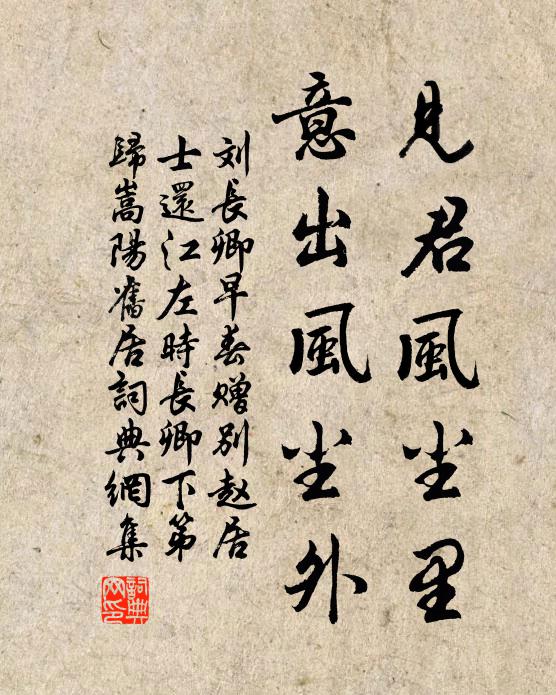 見君風尘里
意出風尘外
刘長卿早春赠别赵居
士還江左時長卿下第
歸嵩陽舊居詞典網集
詞典網印